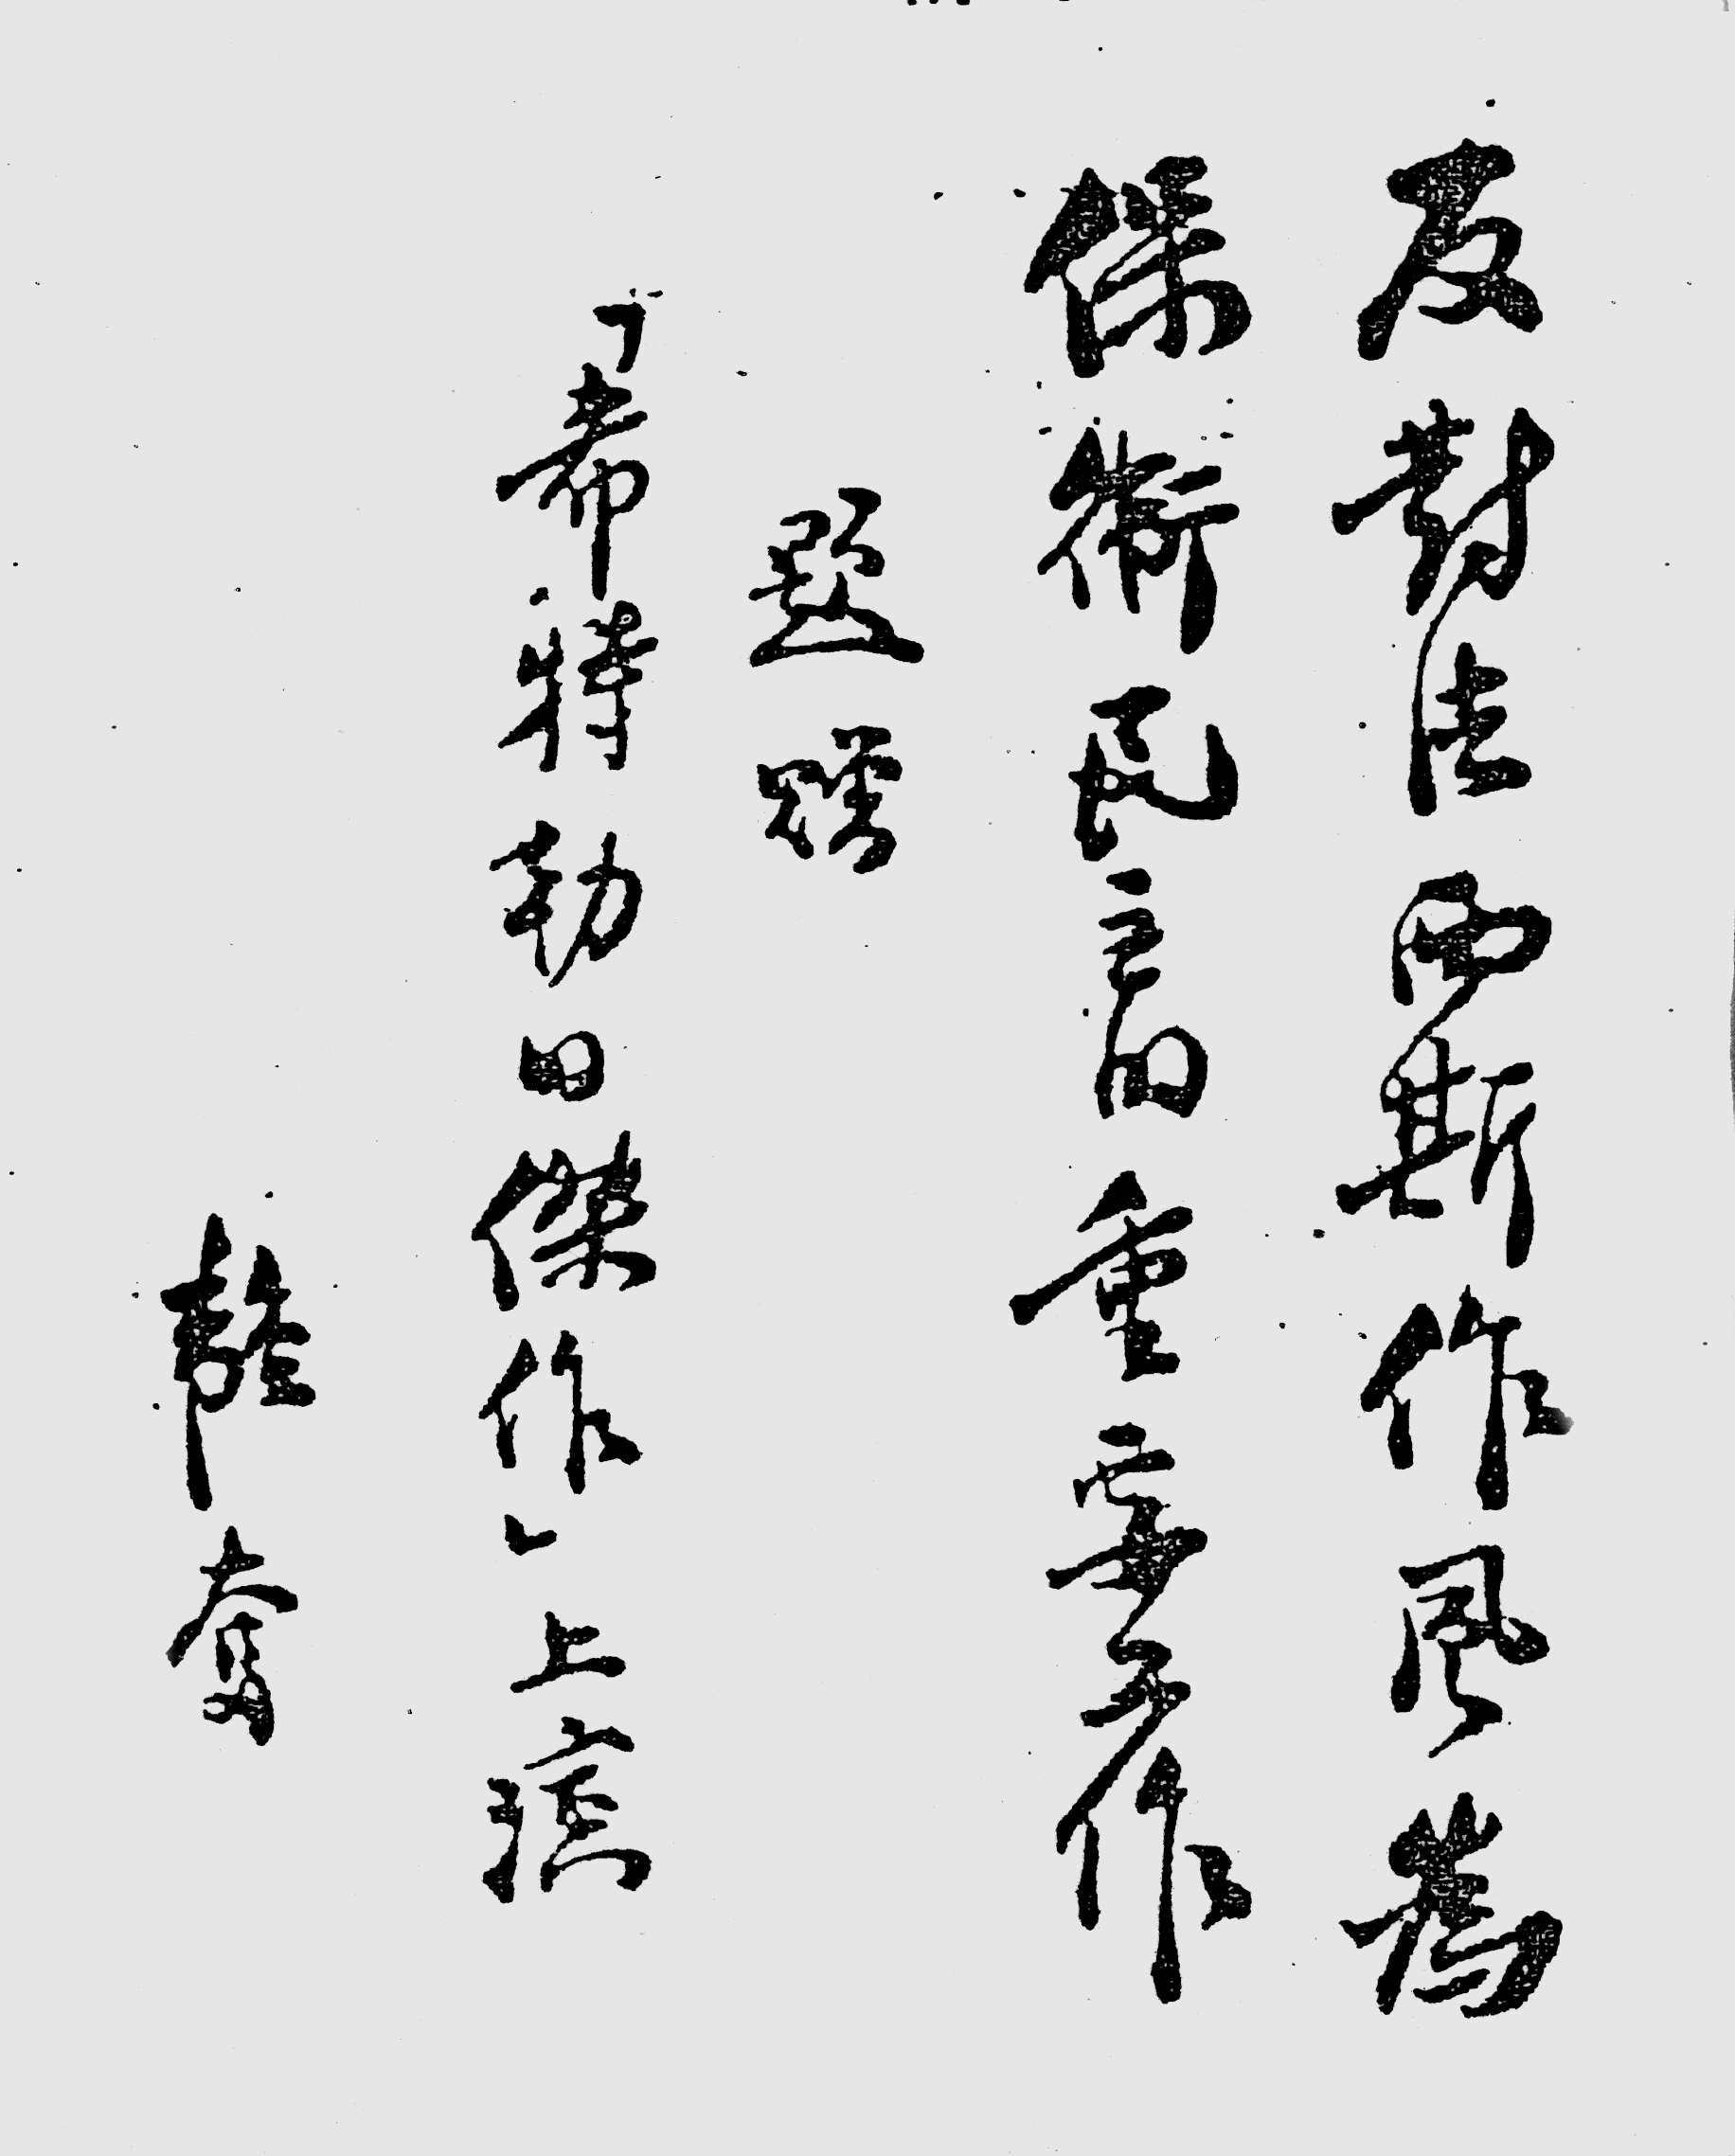 反對法西斯作風為
保衛民主的重要工作
題贈
「希特勒的傑作」上演
韜奮